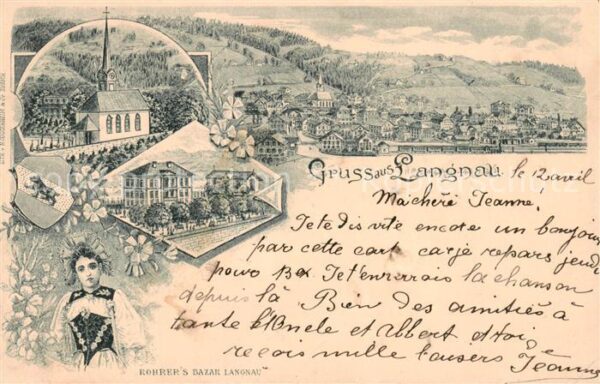 Gruss aus Langnau
le 12 avril
Ma chère Jeanne,
Je te dis vite encore un bonjour
par cette cart car je repars jeudi
pour Je t'enverrais la chanson
depuis là Bien des amitiés à
tante l'Oncle et Albert et toi
reçois mille baisers Jeanne
ROHRER'S BAZAR LANGNAU